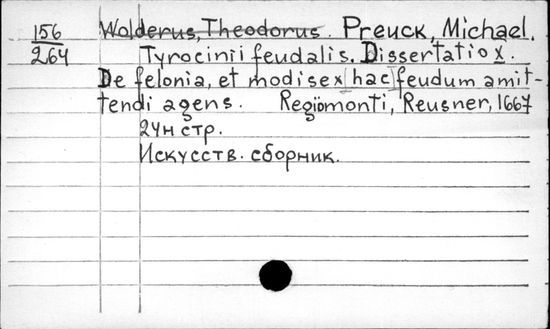 156 Wolderus, Theodorus. Preuck, Michael.
264 Tyrocinii feudalis. Dissertatio X.
De felonia, et modis ex hac feudum amit-
tendi agens. Regiomonti, Reusner, 1667
24н стр.
Искусств. сборник.